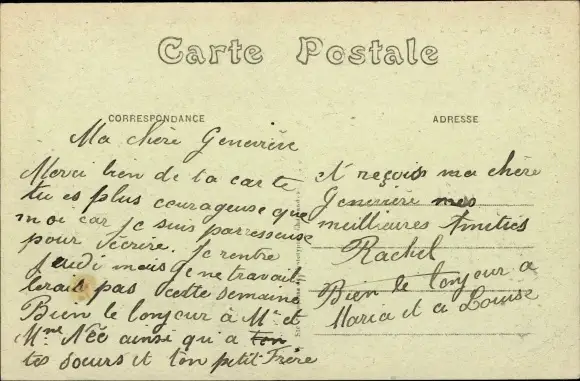 Carte Postale
CORRESPONDANCE
ADRESSE
Ma chère Geneviève
Merci bien de ta carte
tu es plus courageuse que
moi car je suis parresseuse
pour t'écrire. Je rentre
Jeudi mais je ne travail
lerais pas cette semaine
Bien le bonjour à Mr et
Mme Née ainsi qu'a ton
tes soeurs et ton petit Frère
et reçois ma chère
Geneviève mes
meillieures Amitiés
Rachel
Bien le bonjour a
Maria et a Louise